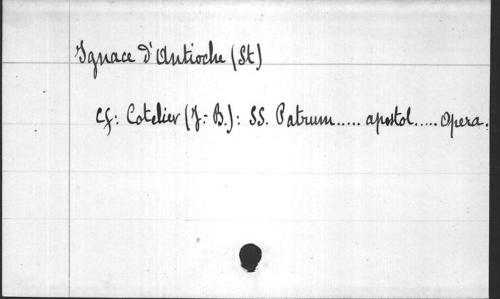 Ignace d'Antioche (St)
Cf: Cotelier (J.-B.): SS. Patrum..... apostol..... Opera.